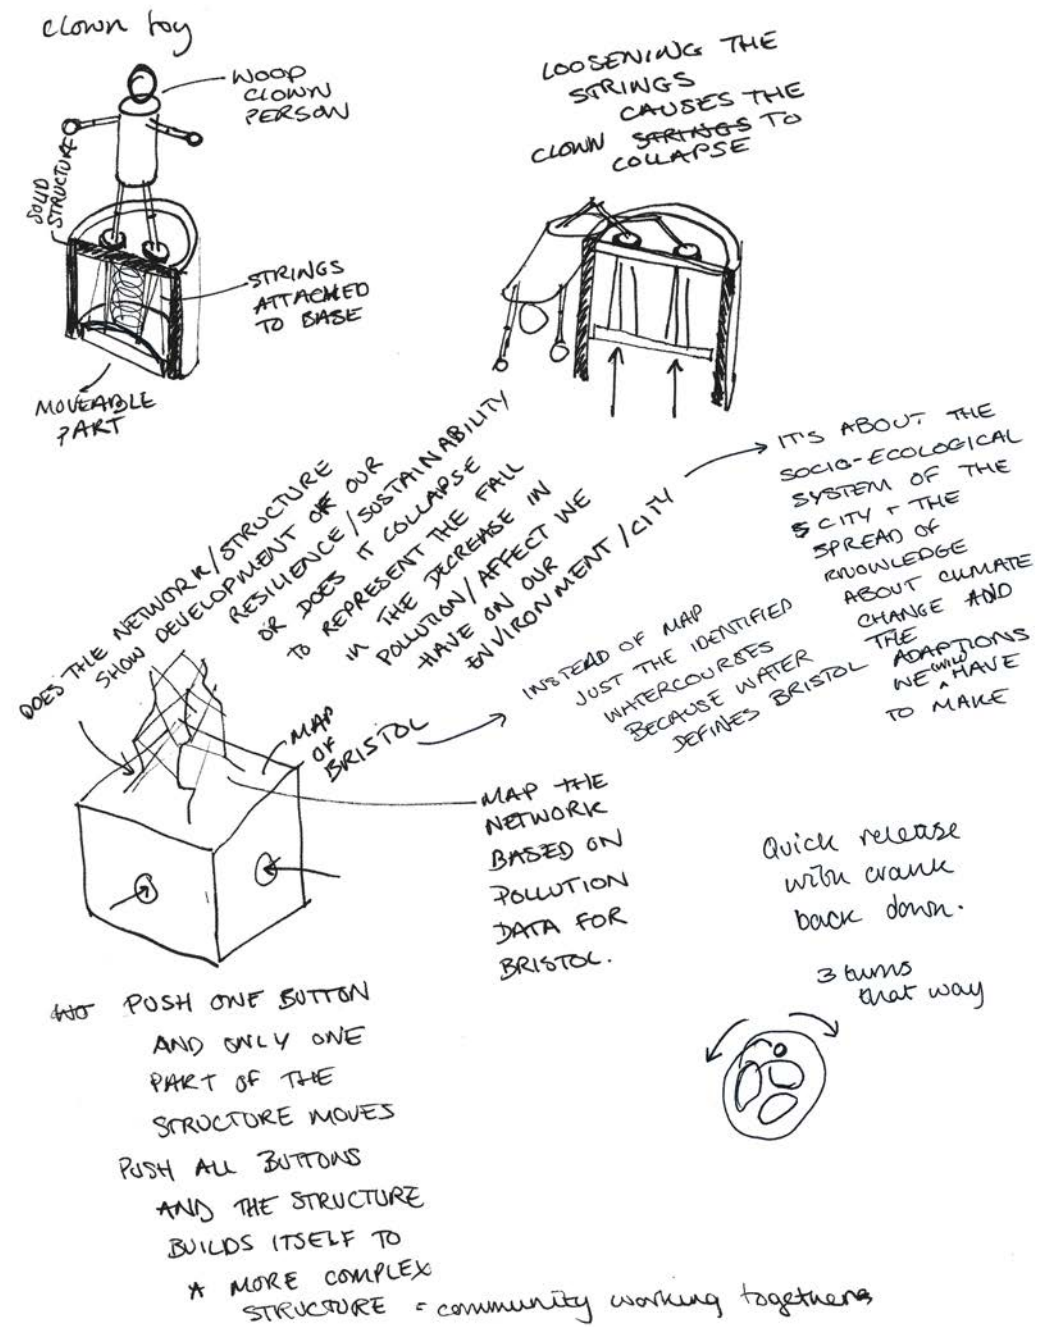 clown toy
WOOD
CLOWN
PERSON
SOLID
STRUCTURE
STRINGS
ATTACHED
TO BASE
MOVEABLE
PART
LOOSENING THE
STRINGS
CAUSES THE
CLOWN STRINGS TO
COLLAPSE
DOES THE NETWORK/STRUCTURE
SHOW DEVELOPMENT OF OUR
RESILIENCE/SUSTAINABILITY
OR DOES IT COLLAPSE
TO REPRESENT THE FALL
IN THE DECREASE IN
POLLUTION/AFFECT WE
HAVE ON OUR
ENVIRONMENT/CITY
IT'S ABOUT THE
SOCIO-ECOLOGICAL
SYSTEM OF THE
CITY + THE
SPREAD OF
KNOWLEDGE
ABOUT CLIMATE
CHANGE AND
THE
ADAPTIONS
WE (WILL) HAVE
TO MAKE
MAP
OF
BRISTOL
INSTEAD OF MAP
JUST THE IDENTIFIED
WATERCOURSES
BECAUSE WATER
DEFINES BRISTOL
MAP THE
NETWORK
BASED ON
POLLUTION
DATA FOR
BRISTOL.
Quick release
with crank
back down.
3 turns
that way
PUSH ONE BUTTON
AND ONLY ONE
PART OF THE
STRUCTURE MOVES
PUSH ALL BUTTONS
AND THE STRUCTURE
BUILDS ITSELF TO
A MORE COMPLEX
STRUCTURE = community working together